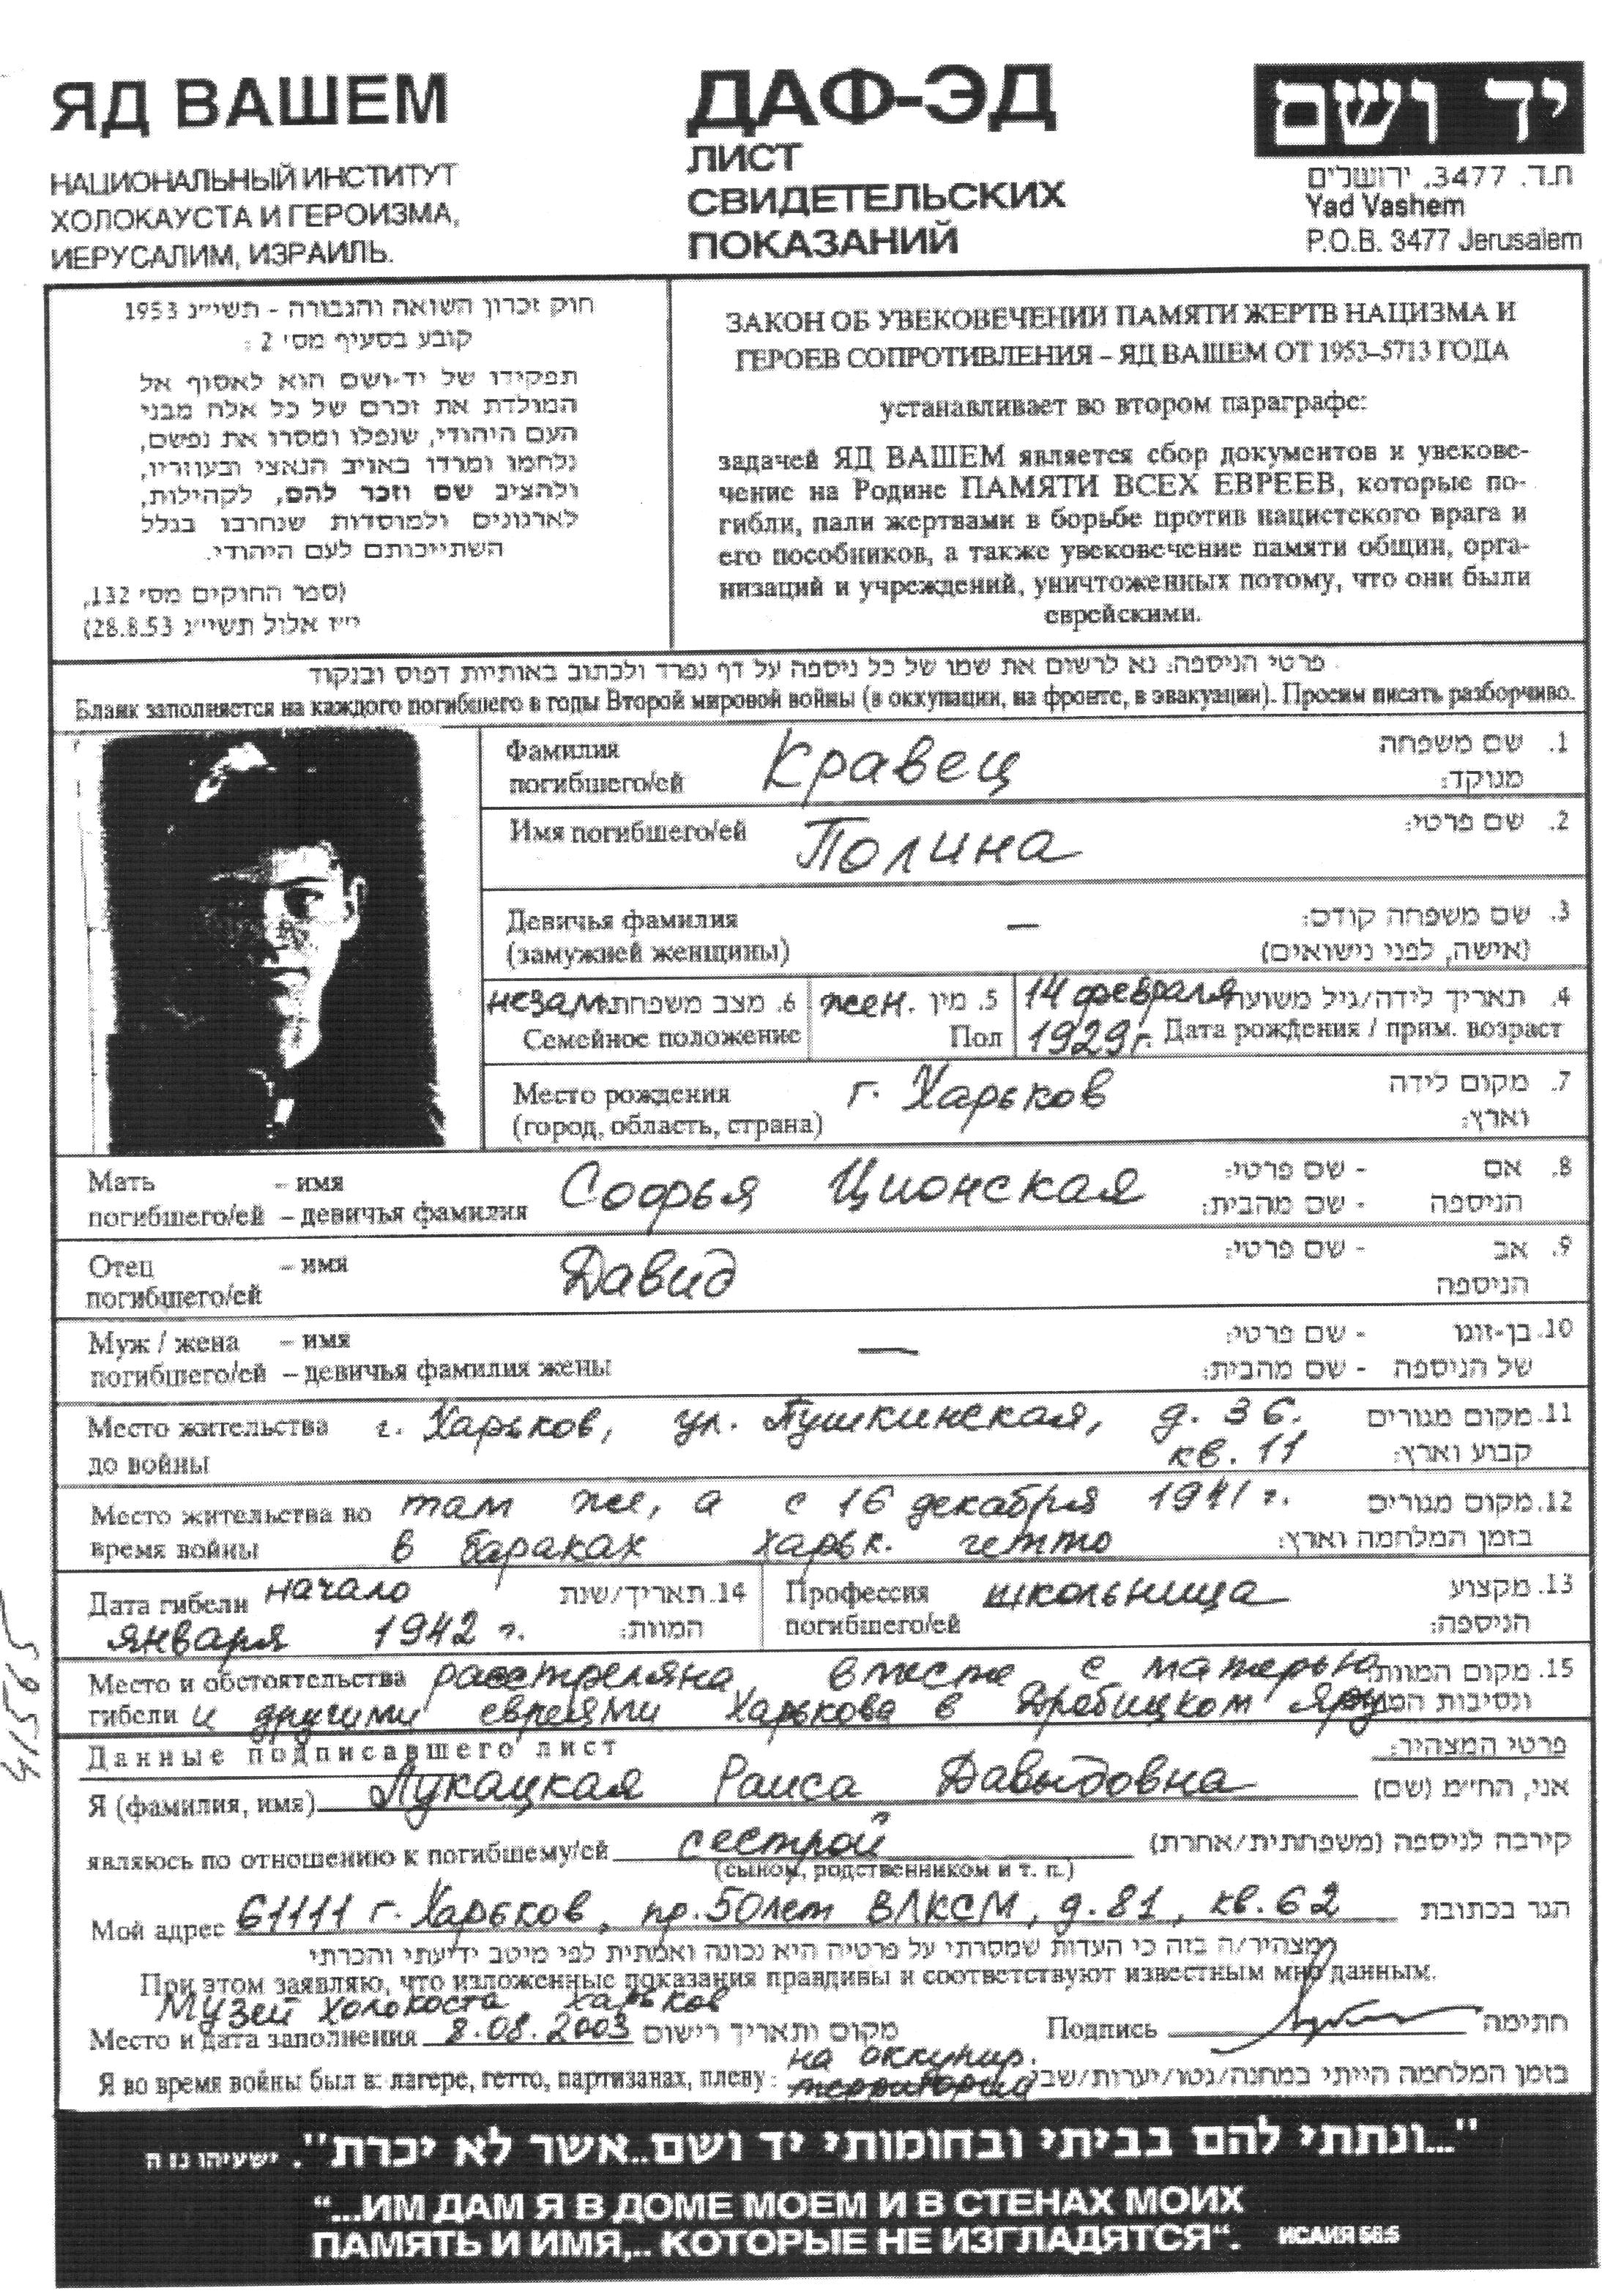 ЯД ВАШЕМ
НАЦИОНАЛЬНЫЙ ИНСТИТУТ
ХОЛОКАУСТА И ГЕРОИЗМА,
ИЕРУСАЛИМ, ИЗРАИЛЬ.
ДАФ-ЭД
ЛИСТ
СВИДЕТЕЛЬСКИХ
ПОКАЗАНИЙ
יד ושם
ת.ד. 3477, ירושלים
Yad Vashem
P.O.B. 3477 Jerusalem
חוק זכרון השואה והגבורה - תשי״ג 1953
קובע בסעיף מס׳ 2 :
תפקידו של יד-ושם הוא לאסוף אל
המולדת את זכרם של כל אלה מבני
העם היהודי, שנפלו ומסרו את נפשם,
נלחמו ומרדו באויב הנאצי ובעוזריו,
ולהציב שם וזכר להם, לקהילות,
לארגונים ולמוסדות שנחרבו בגלל
השתייכותם לעם היהודי.
(ספר החוקים מס׳ 132,
י״ז אלול תשי״ג 28.8.53)
ЗАКОН ОБ УВЕКОВЕЧЕНИИ ПАМЯТИ ЖЕРТВ НАЦИЗМА И
ГЕРОЕВ СОПРОТИВЛЕНИЯ – ЯД ВАШЕМ ОТ 1953–5713 ГОДА
устанавливает во втором параграфе:
задачей ЯД ВАШЕМ является сбор документов и увекове-
чение на Родине ПАМЯТИ ВСЕХ ЕВРЕЕВ, которые по-
гибли, пали жертвами в борьбе против нацистского врага и
его пособников, а также увековечение памяти общин, орга-
низаций и учреждений, уничтоженных потому, что они были
еврейскими.
פרטי הניספה: נא לרשום את שמו של כל ניספה על דף נפרד ולכתוב באותיות דפוס ובנקוד
Бланк заполняется на каждого погибшего в годы Второй мировой войны (в оккупации, на фронте, в эвакуации). Просим писать разборчиво.
Фамилия Кравец 1. שם משפחה
погибшего/ей מנוקד:
Имя погибшего/ей Полина 2. שם פרטי:
Девичья фамилия — 3. שם משפחה קודם:
(замужней женщины) (אישה, לפני נישואים)
незам. 6. מצב משפחתי
Семейное положение
жен. 5. מין
Пол
14 февраля 4. תאריך לידה/גיל משוער
1929 г. Дата рождения / прим. возраст
Место рождения г. Харьков 7. מקום לידה
(город, область, страна) וארץ:
Мать – имя Софья Ционская 8. אם - שם פרטי:
погибшего/ей – девичья фамилия הניספה - שם מהבית:
Отец – имя Давид 9. אב - שם פרטי:
погибшего/ей הניספה
Муж / жена – имя — 10. בן-זוגו - שם פרטי:
погибшего/ей – девичья фамилия жены של הניספה - שם מהבית:
Место жительства г. Харьков, ул. Пушкинская, д. 36. 11. מקום מגורים
до войны кв. 11 קבוע וארץ:
Место жительства во там же, а с 16 декабря 1941 г. 12. מקום מגורים
время войны в бараках харьк. гетто בזמן המלחמה וארץ:
Дата гибели начало 14. תאריך/שנת
января 1942 г. המוות:
Профессия школьница 13. מקצוע
погибшего/ей הניספה:
Место и обстоятельства расстреляна вместе с матерью 15. מקום המוות
гибели и другими евреями Харькова в Дробицком Яру ונסיבות המוות
Данные подписавшего лист פרטי המצהיר:
Я (фамилия, имя) Лукацкая Раиса Давыдовна אני, החי״מ (שם)
являюсь по отношению к погибшему/ей сестрой קירבה לניספה (משפחתית/אחרת)
(сыном, родственником и т. п.)
Мой адрес 61111 г. Харьков, пр. 50 лет ВЛКСМ, д. 81, кв. 62 הגר בכתובת
מצהיר/ה בזה כי העדות שמסרתי על פרטיה היא נכונה ואמתית לפי מיטב ידיעתי והכרתי
При этом заявляю, что изложенные показания правдивы и соответствуют известным мне данным.
Музей холокоста Харьков
Место и дата заполнения 8.08.2003 מקום ותאריך רישום Подпись חתימה
на оккупир.
Я во время войны был в: лагере, гетто, партизанах, плену: территории בזמן המלחמה הייתי במחנה/גטו/יערות/שבי
415565
"...ונתתי להם בביתי ובחומותי יד ושם...אשר לא יכרת". ישעיהו נו ה
“...ИМ ДАМ Я В ДОМЕ МОЕМ И В СТЕНАХ МОИХ
ПАМЯТЬ И ИМЯ,.. КОТОРЫЕ НЕ ИЗГЛАДЯТСЯ“. ИСАИЯ 56:5